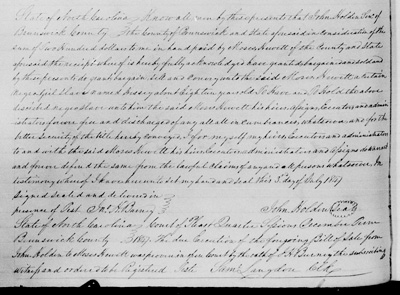 State of North Carolina Know all men by these presents that I John Holden Senr of
Brunswick County of the County of Brunswick and State aforesaid in consideration of the
sum of two Hundred dollars to me in hand paid by Moses Hewett of the County and State
aforesaid the receipt whereof is hereby fully acknowledged have granted bargained and sold and
by these presents do grant bargain sell and convey unto the said Moses Hewett a certain
negro girl slave named about Eight years old To have and to Hold the above
described negro slave unto him the said Moses Hewett his heirs assigns Executors and admin
istrators forever free and discharged of any all all incumbrances whatsoever and for the
better security of the title hereby conveyed I for myself my heirs Executors and administrators
to and with the said Moses Hewett his heirs Executors administrators and assigns warrant
and forever defend the same from the lawful claims of any and all persons whatsoever. In
testimony whereof I have hereunto set my hand and seal this 3 day of July 1847
Signed sealed and delivered in
presence of Test Burney John Holden Seal
State of North Carolina Court of Pleas & Quarter Sessions December Term
Brunswick County 1847. The due Execution of the foregoing Bill of Sale from
John Holden to Moses Hewett was proven in open Court by the oath of Burney the subscribing
witness and ordered to be Registered Test. Saml Langdon Clk